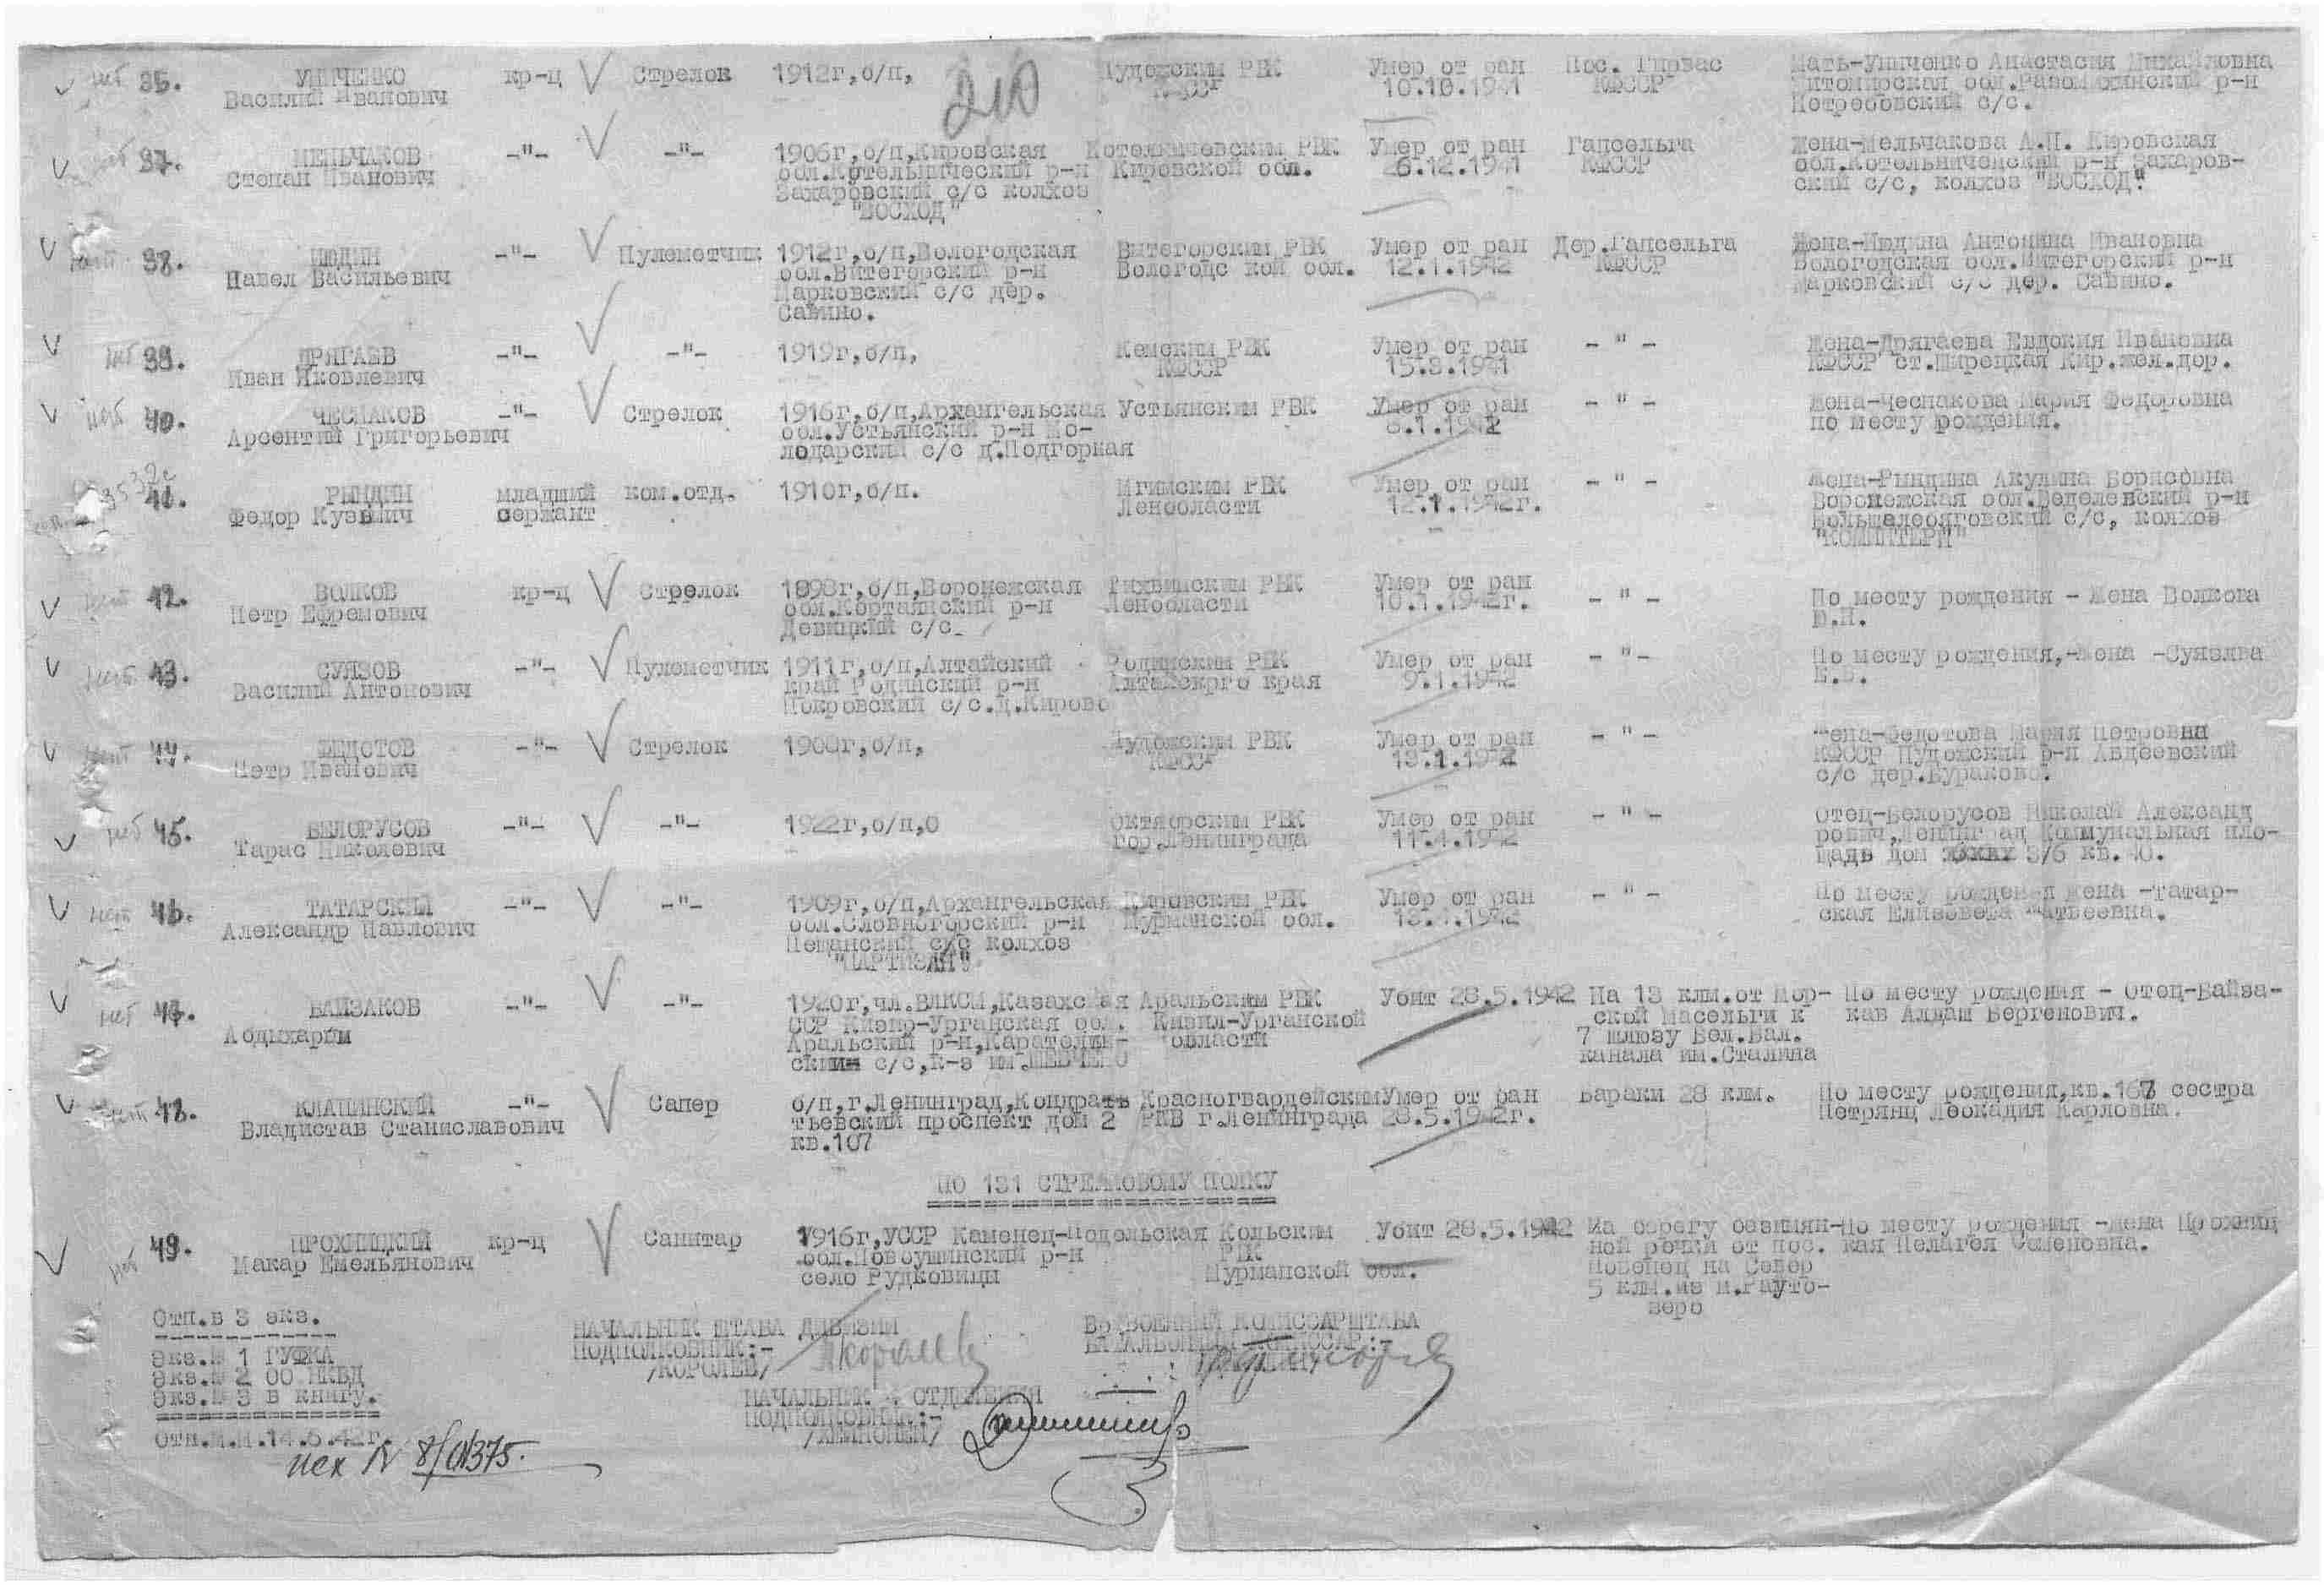 нет 36. УНИЧЕНКО кр-ц V Стрелок 1912г,б/п, Пудожским РВК Умер от ран Пос. Гирвас Мать-Униченко Анастасия Михайловна
Василий Иванович 210 КФССР 10.10.1941 КФССР Житомирская обл. р-н
с/с.
нет 37. МЕЛЬЧАКОВ -"- V -"- 1906г,б/п,Кировская Котельничевским РВК Умер от ран Гапсельга Жена-Мельчакова А.П. Кировская
Степан Иванович обл.Котельнический р-н Кировской обл. 26.12.1941 КФССР обл.Котельнический р-н Захаров-
Захаровский с/с колхоз ский с/с, колхоз "ВОСХОД".
"ВОСХОД"
нет 38. ИЮДИН -"- V Пулеметчик 1912г,б/п,Вологодская Витегорским РВК Умер от ран Дер.Гапсельга Жена-Июдина Антонина Ивановна
Павел Васильевич обл.Витегорский р-н Вологодс кой обл. 12.1.1942 КФССР Вологодская обл.Витегорский р-н
Марковский с/с дер. Марковский с/с дер. Савино.
Савино.
нет 39. ДРЯГАЕВ -"- V -"- 1919г,б/п, Кемским РВК Умер от ран - " - Жена-Дрягаева Евдокия Ивановна
Иван Яковлевич КФССР 15.8.1941 КФССР ст.Ширецкая Кир.жел.дор.
нет 40. ЧЕСНАКОВ -"- V Стрелок 1916г,б/п,Архангельская Устьянским РВК Умер от ран - " - Жена-Чеснакова Мария Федоровна
Арсентий Григорьевич обл.Устьянский р-н Мо- 8.1.1942 по месту рождения.
лодарский с/с д.Подгорная
41. РЫНДИН младший ком.отд. 1910г,б/п. Мгинским РВК Умер от ран - " - Жена-Рындина Акулина Борисовна
Федор Кузьмич сержант Ленобласти 12.1.1942г. Воронежская обл. р-н
с/с, колхоз
"КОМИНТЕРН"
нет 42. ВОЛКОВ кр-ц V Стрелок 1898г,б/п,Воронежская Тихвинским РВК Умер от ран - " - По месту рождения - Жена Волкова
Петр Ефремович обл. р-н Ленобласти 10.1.1942г.
Девицкий с/с.
нет 43. СУЯЗОВ -"- V Пулеметчик 1911г,б/п,Алтайский Родинским РВК Умер от ран - " - По месту рождения,-Жена -Суязова
Василий Антонович край Родинский р-н Алтайскрго края 9.1.1942
Покровский с/с.д.Кирово
нет 44. ФЕДОТОВ -"- V Стрелок 1908г,б/п, Пудожским РВК Умер от ран - " - Жена-Федотова Мария Петровна
Петр Иванович КФССР 13.1.1942 КФССР Пудожский р-н Авдеевский
с/с дер.Бураково.
нет 45. БЕЛОРУСОВ -"- V -"- 1922г,б/п,0 Октябрьским РВК Умер от ран - " - Отец-Белорусов Николай Александ
Тарас Николаевич гор.Ленинграда 11.1.1942 рович,Ленинград Коммунальная пло-
щадь дом 3/6 кв.
нет 46. ТАТАРСКИЙ -"- V -"- 1909г,б/п,Архангельская Кировским РВК Умер от ран - " - По месту рождения жена -Татар-
Александр Павлович обл. р-н Мурманской обл. 13.1.1942 ская Елизовета Матвеевна.
с/с колхоз
"ПАРТИЗАН".
нет 47. БАЙЗАКОВ -"- V -"- 1920г,чл.ВЛКСМ,Казахская Аральским РВК Убит 28.5.1942 На 13 клм.от Мор- По месту рождения - Отец-Байза-
Абдыхарым ССР Кизил-Урганская обл. Кизил-Урганской ской Масельги к кав Алдаш Бергенович.
Аральский р-н, области 7 шлюзу Бел.Бал.
с/с,к-з им.ШЕВЧЕНКО канала им.Сталина
нет 48. КЛАПИНСКИЙ -"- V Сапер б/п,г.Ленинград,Кондрать Красногвардейским Умер от ран Бараки 28 клм. По месту рождения,кв.167 сестра
Владистав Станиславович тьевский проспект дом 2 РКВ г.Ленинграда 28.5.1942г. Петрянц Леокадия Карловна.
кв.107
ПО 131 СТРЕЛКОВОМУ ПОЛКУ
нет 49. ПРОХНИЦКИЙ кр-ц V Санитар 1916г,УССР Каменец-Подольская Кольским Убит 28.5.1942 На берегу безимян- По месту рождения -Жена Прохниц
Макар Емельянович обл.Новоушинский р-н РВК ной речки от пос. кая Пелагея Семеновна.
село Рудковицы Мурманской обл. Повенец на Север
5 клм.из м.Рауто-
зеро
Отп.в 3 экз.
Экз.№ 1 ГУФКА
Экз.№ 2 ОО НКВД
Экз.№ 3 в книгу.
Отп.М.М.14.6.42г.
исх № 8/01375.
НАЧАЛЬНИК ШТАБА ДИВИЗИИ
ПОДПОЛКОВНИК:-
/КОРОЛЕВ/
ВОЕННЫЙ КОМИССАР ШТАБА
БАТАЛЬОННЫЙ КОМИССАР:-
НАЧАЛЬНИК 4 ОТДЕЛЕНИЯ
ПОДПОЛКОВНИК:-
/ХЕЙНОНЕН/